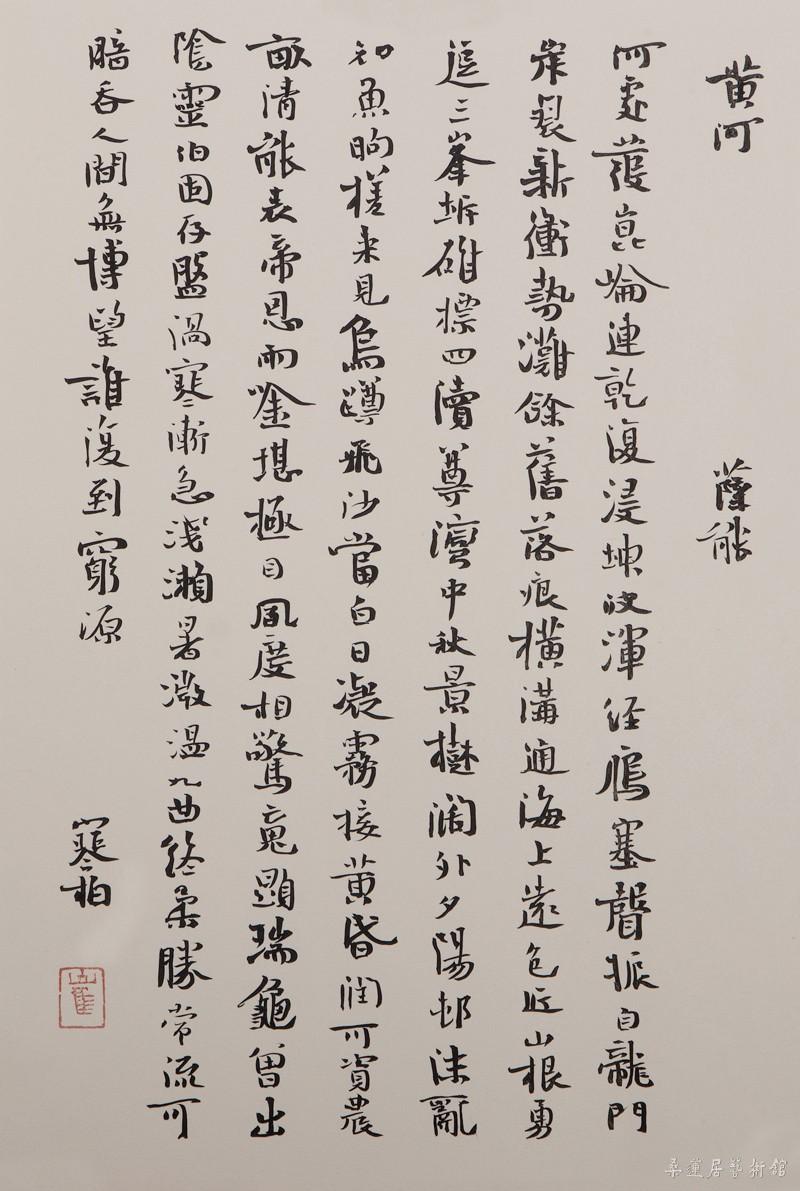 黃河 薛能
何處發崑崘連乾復浸坤波渾經鴈塞聲振自龍門
岸裂新衝勢灘餘舊落痕橫溝通海上遠色近山根勇
逗三峯坼雄標四瀆尊灣中秋景樹闊外夕陽邨沫亂
知魚响槎來見鳥蹲飛沙當白日凝霧接黃昏潤可資農
畝清能表帝恩雨唫堪極目風度相驚魂顯瑞龜曾出
陰靈伯固存盤渦寒漸急淺瀨暑微溫九曲終柔勝常流可
暗吞人間無博望誰復到窮源
寒柏
桑蓮居藝術館